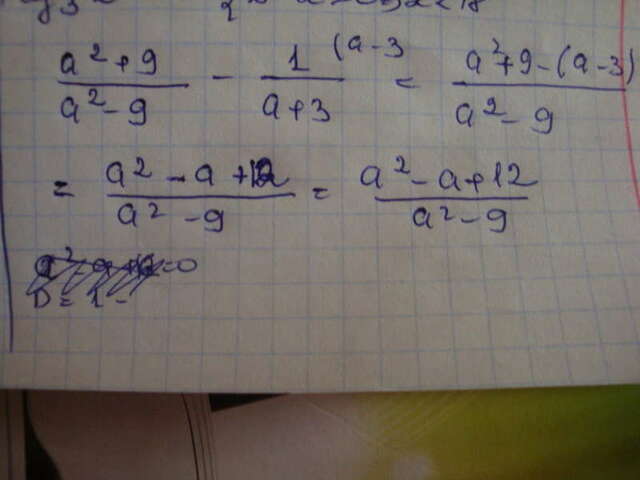 a²+9 / a²-9 - 1 (a-3 / a+3 = a²+9-(a-3) / a²-9
= a²-a+12 / a²-9 = a²-a+12 / a²-9
=0
D=1-